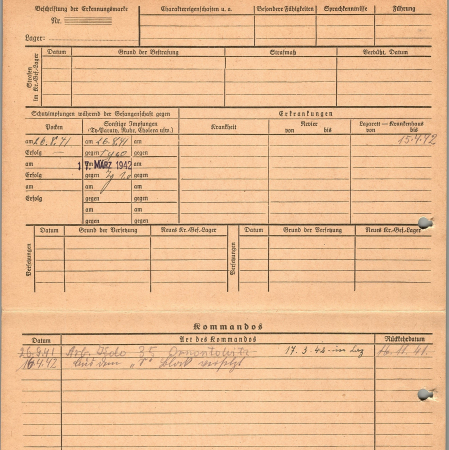 Beschriftung der Erkennungsmarke
Nr.
Lager:
Charaktereigenschaften u. a.
Besondere Fähigkeiten
Sprachkenntnisse
Führung
Strafen im Kr.-Gef.-Lager
Datum
Grund der Bestrafung
Strafmaß
Verbüßt, Datum
Schutzimpfungen während der Gefangenschaft gegen
Erkrankungen
Pocken
Sonstige Impfungen
(Ty-Paraty, Ruhr, Cholera usw.)
Krankheit
Revier
von bis
Lazarett — Krankenhaus
von bis
am 26.8.41 am 26.8.41 am
15.4.42
Erfolg — gegen gegen
am am 17. MÄRZ 1942 am
Erfolg gegen gegen
am am am
Erfolg gegen gegen
am am
gegen gegen
Versetzungen
Datum
Grund der Versetzung
Neues Kr.-Gef.-Lager
Versetzungen
Datum
Grund der Versetzung
Neues Kr.-Gef.-Lager
Kommandos
Datum
Art des Kommandos
Rückkehrdatum
26.9.41 Arb. Kdo 17.3.42 - 11.41.
16.4.42 Aus dem Block